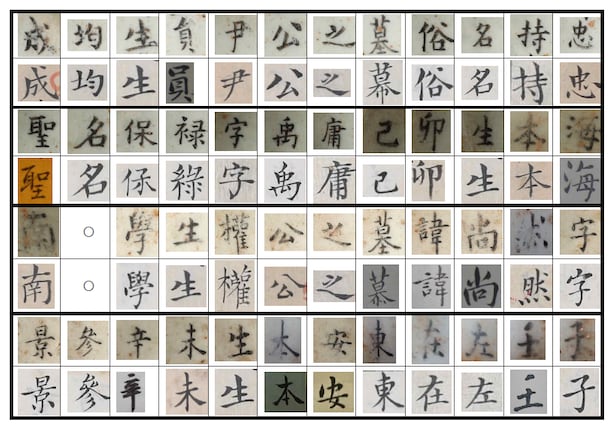 成均生員尹公之墓俗名持忠
成均生員尹公之幕俗名持忠
聖名保禄字禹庸己卯生本海
聖名保綠字禹庸己卯生本海
南○學生權公之墓諱尚然字
南○學生權公之慕諱尚然字
景參辛未生本安東在左壬子
景參辛未生本安東在左壬子